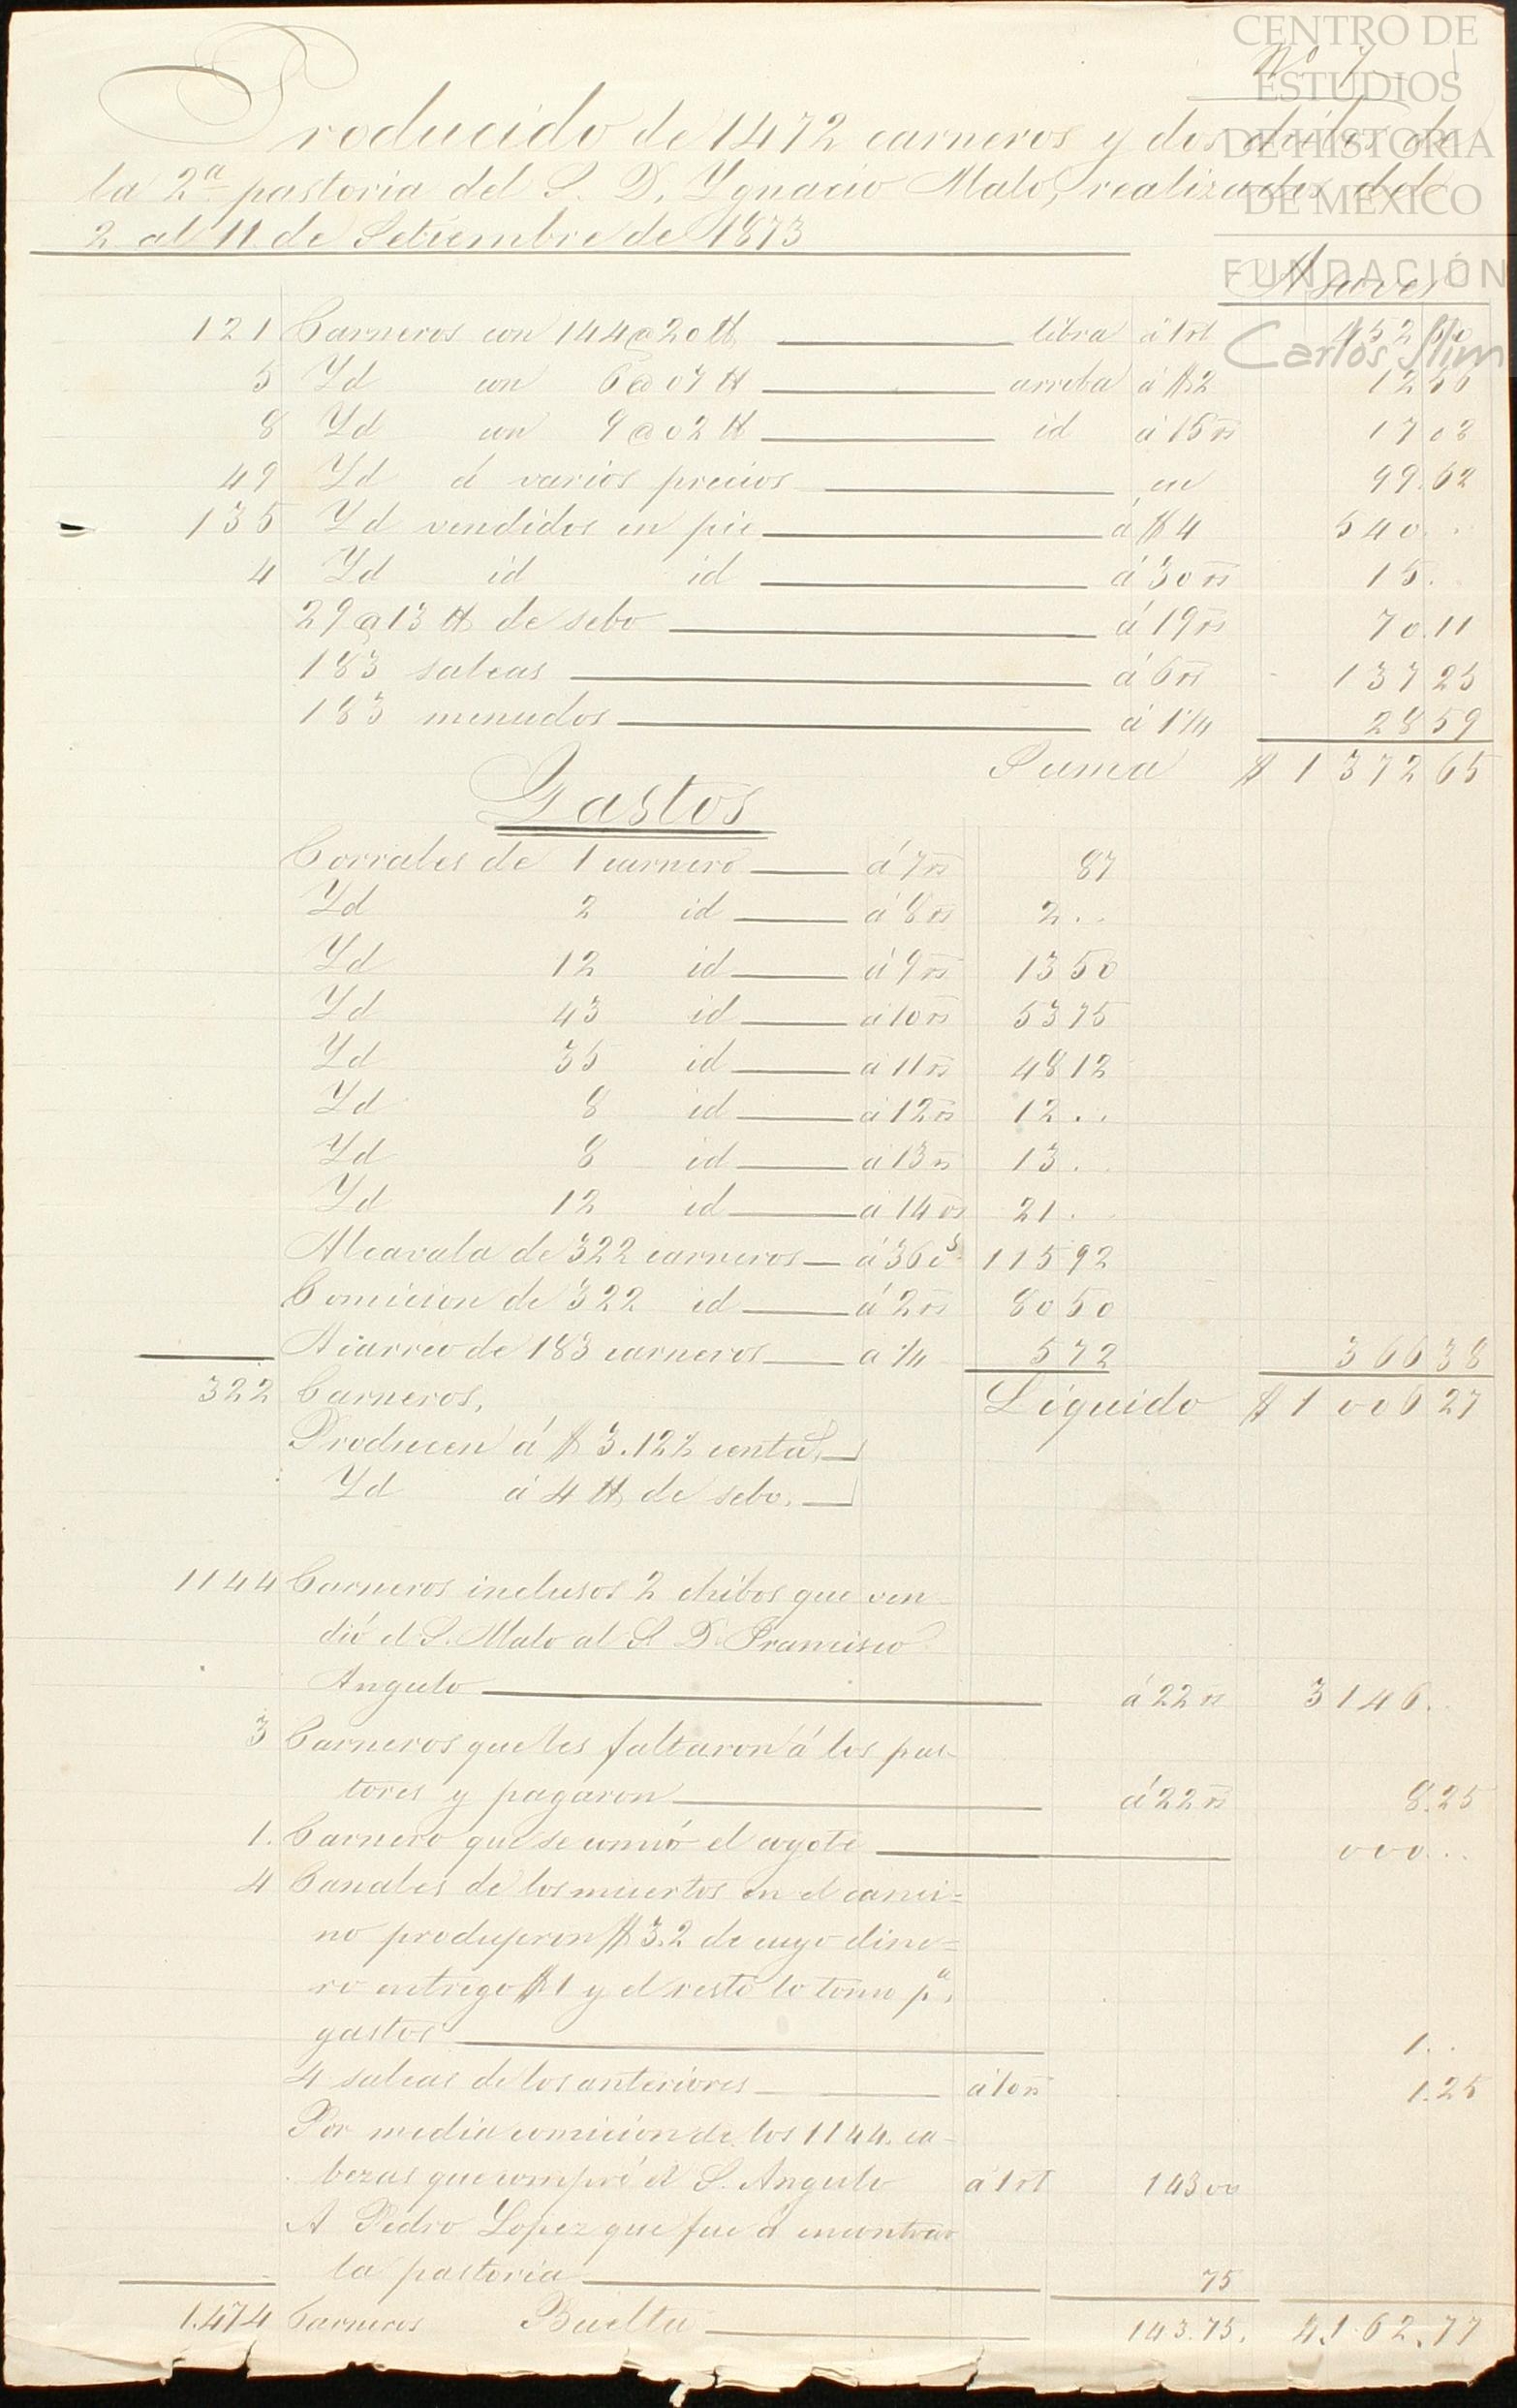 CENTRO DE
ESTUDIOS
DE HISTORIA
DE MÉXICO
FUNDACIÓN
Carlos Slim
Nº 7.
Producido de 1472 carneros y dos chibos de
la 2ª pastoria del S. D. Ygnacio Malo, realizados del
2 al 11 de Setiembre de 1873
A saver
121 Carneros con 144@20 lb libra á 1 rl $452 50
5 Yd con 6@07 lb arroba á $2 12 56
8 Yd con 9@02 lb id á 15 rs 17 03
49 Yd á varios precios en 99.62
135 Yd vendidos en pie á $4 540..
4 Yd id id á 30 rs 15.
29@13 lb de sebo á 19 rs 70.11
183 saleas á 6 rs 137 25
183 menudos á 1 1/4 28 59
Suma $1372 65
Gastos
Corrales de 1 carnero á 7 rs 87
Yd 2 id á 8 rs 2..
Yd 12 id á 9 rs 13 50
Yd 43 id á 10 rs 53 75
Yd 35 id á 11 rs 48 12
Yd 8 id á 12 rs 12..
Yd 8 id á 13 rs 13..
Yd 12 id á 14 rs 21..
Alcavala de 322 carneros á 36 cs 115 92
Comicion de 322 id á 2 rs 80 50
Acarreo de 183 carneros a 1/4 5 72 366 38
322 Carneros. Liquido $1006 27
Producen á $3.12½ centas
Yd á 4 lb de sebo.
1144 Carneros inclusos 2 chibos que ven-
dió el S. Malo al S. D. Francisco
Angulo á 22 rs 3146..
3 Carneros que les faltaron á los pas-
tores y pagaron á 22 rs 8.25
1. Carnero que se comió el coyote 000...
4 Canales de los muertos en el cami=
no produjeron $3.2 de cuyo dine=
ro entrego $1 y el resto lo tomo pª
gastos 1..
4 saleas de los anteriores á 10 rs 1.25
Por media comicion de los 1144. ca-
bezas que compró el S. Angulo á 1 rl 143 00
A Pedro Lopez que fue á encontrar
la pastoria 75
1.474 Carneros Buelta 143.75. 4,162.77